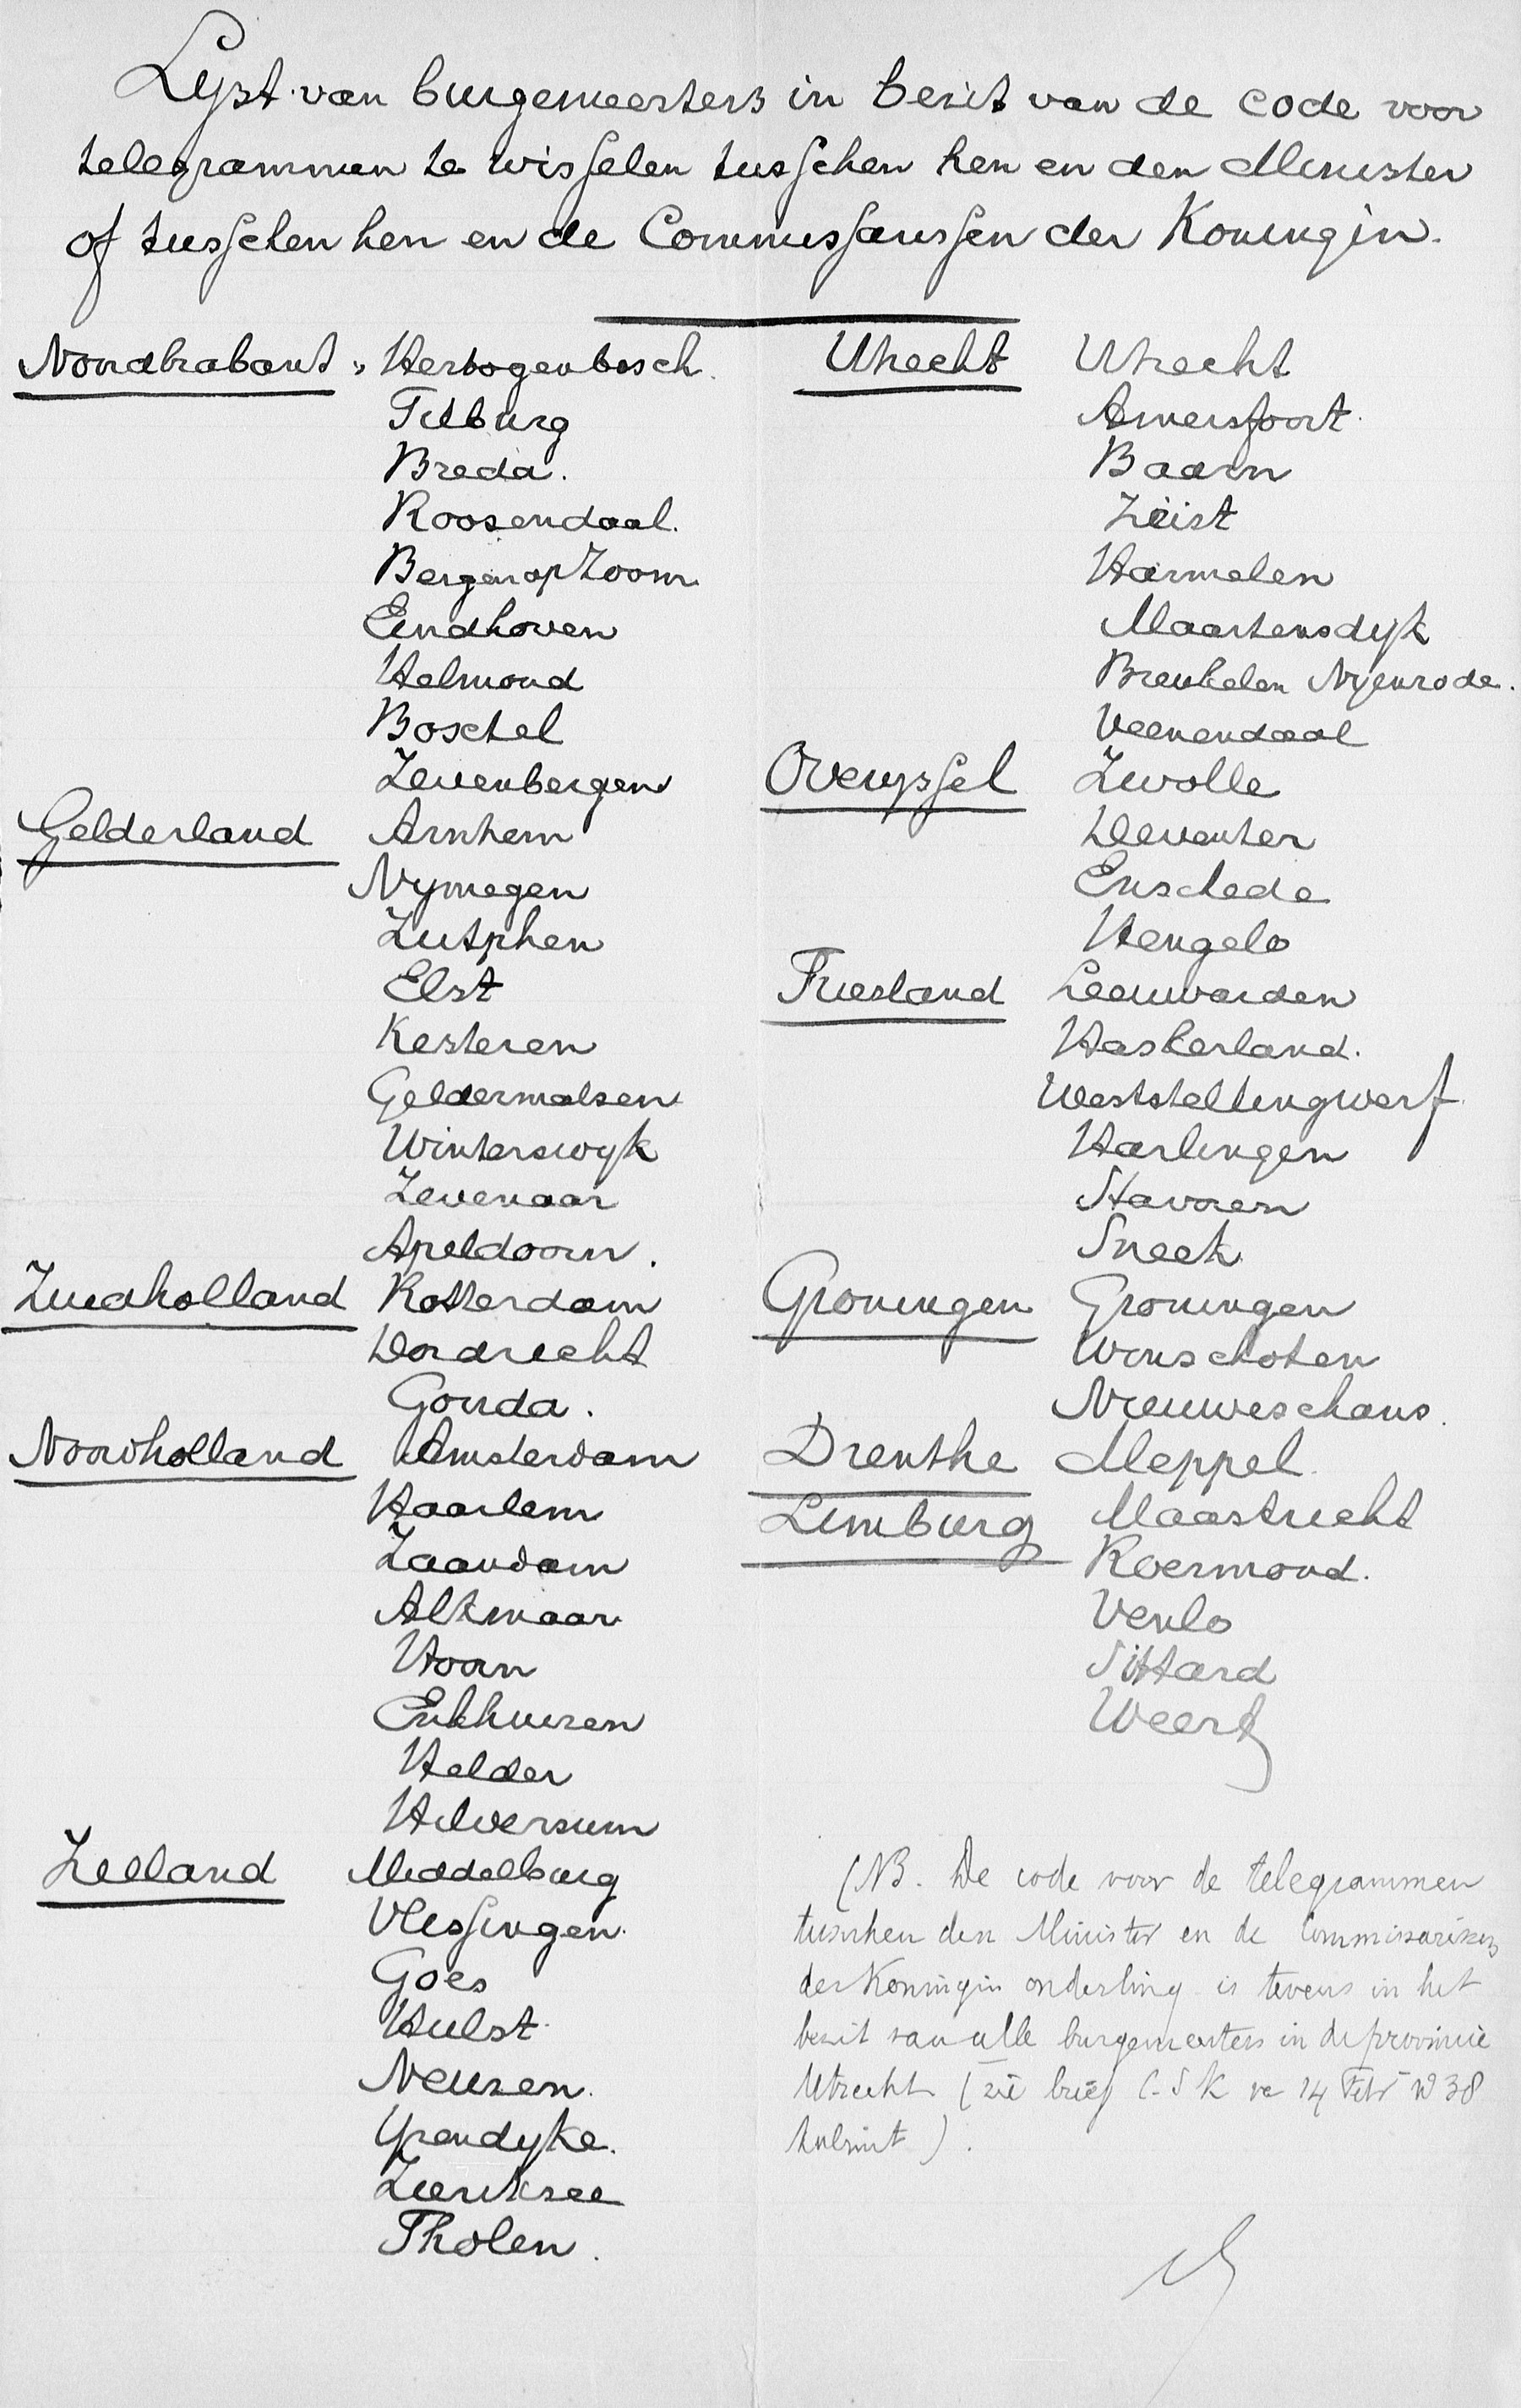 Lyst van burgemeesters in bezit van de code voor
telegrammen te wisselen tusschen hen en den Minister
of tusschen hen en de Commissarissen der Koningin.
Noordbrabant 's Hertogenbosch.
Tilburg
Breda.
Roosendaal.
Bergen op Zoom
Eindhoven
Helmond
Boxtel
Zevenbergen
Gelderland Arnhem
Nymegen
Zutphen
Elst
Kesteren
Geldermalsen
Winterswyk
Zevenaar
Apeldoorn.
Zuidholland Rotterdam
Dordrecht
Gouda.
Noordholland Amsterdam
Haarlem
Zaandam
Alkmaar
Hoorn
Enkhuizen
Helder
Hilversum
Zeeland Middelburg
Vlissingen.
Goes
Hulst.
Neuzen.
Yzendyke.
Zierikzee
Tholen.
Utrecht Utrecht
Amersfoort.
Baarn
Zeist
Harmelen
Maartensdyk
Breukelen Nyenrode.
Veenendaal
Overyssel Zwolle
Deventer
Enschede
Hengelo
Friesland Leeuwarden
Haskerland.
Weststellingwerf.
Harlingen
Stavoren
Sneek
Groningen Groningen
Winschoten
Nieuweschans.
Drenthe Meppel.
Limburg Maastricht
Roermond.
Venlo
Sittard
Weert
(NB. De code voor de telegrammen
tusschen den Minister en de Commissarissen
der Koningin onderling is tevens in het
bezit van alle burgemeesters in de provincie
Utrecht (zie brief C.d.K. 14 Febr. No 38
)